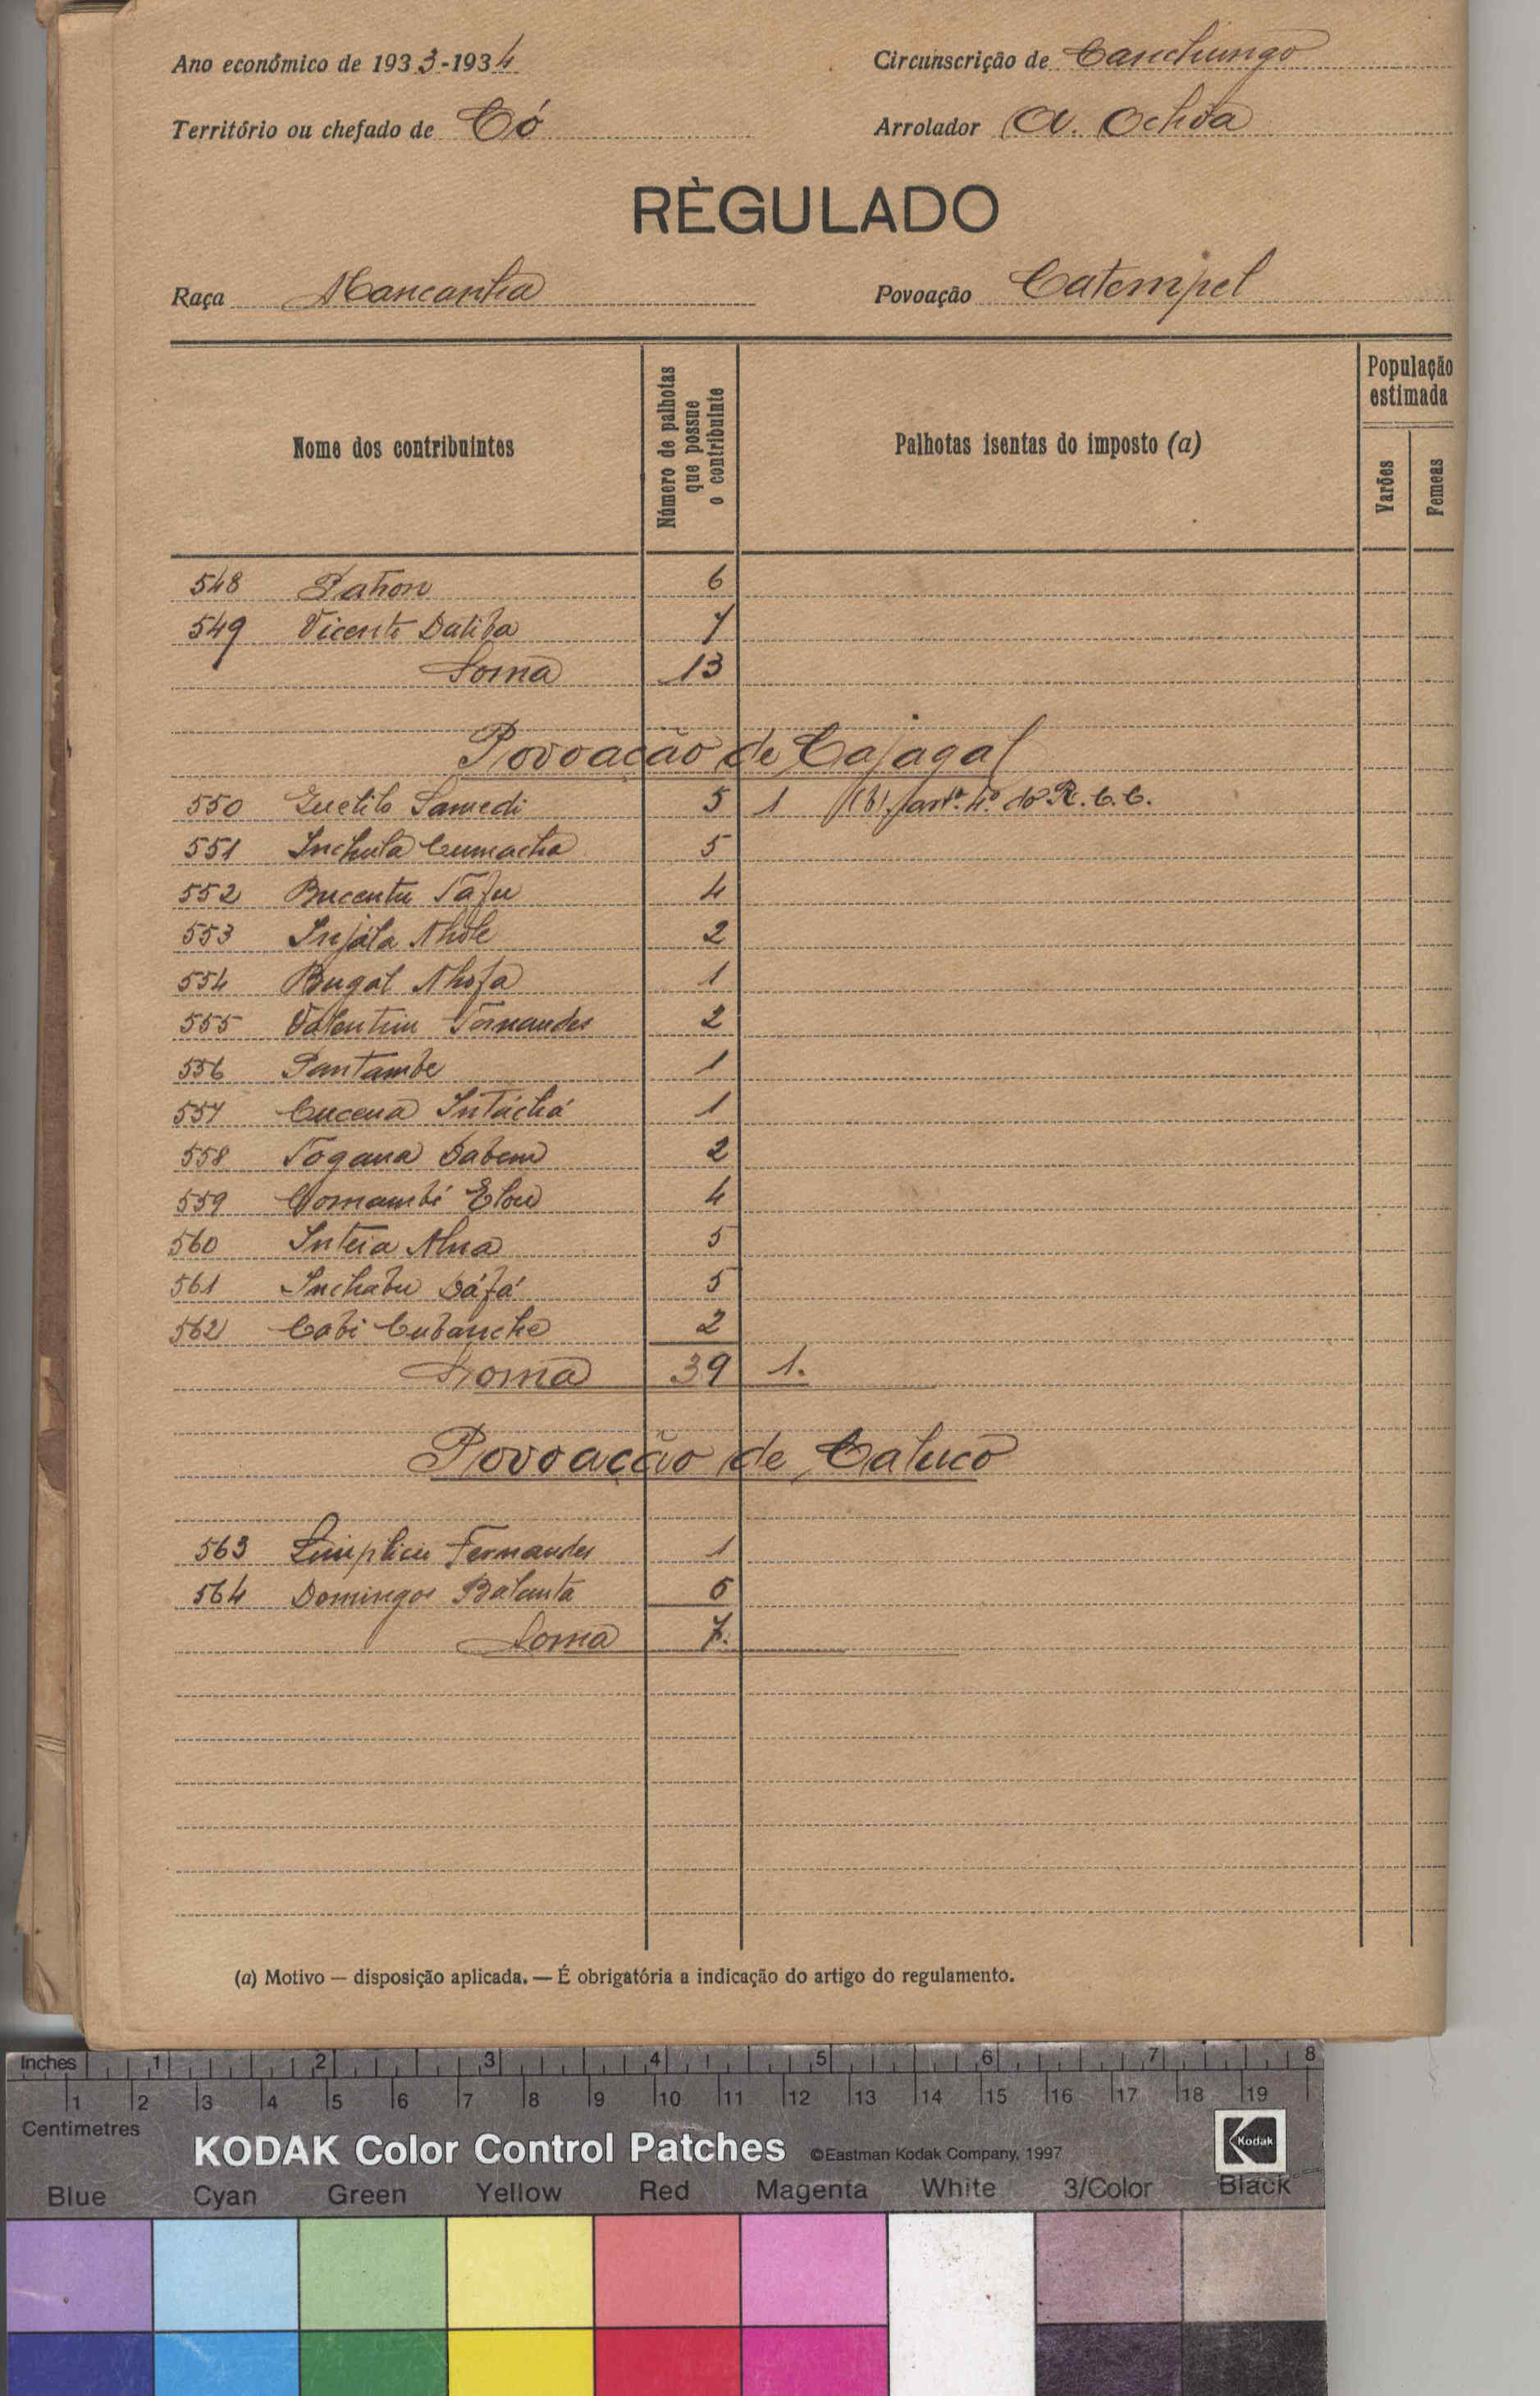 Ano económico de 1933-1934
Circunscrição de Canchungo
Território ou chefado de Có
Arrolador A. Ochôa
RÈGULADO
Raça Mancanha
Povoação Catempel
Nome dos contribuintes
Número de palhotas que possue o contribuinte
Palhotas isentas do imposto (a)
População estimada
Varões
Femeas
548 Patron 6
549 Vicente Daliba 7
Soma 13
Povoação de Cajagal
550 Samedi 5 1 (b) art.º 4.º do R. C. C.
551 Inchula Cumacha 5
552 Bucentu Tafu 4
553 Injála Nhole 2
554 Bugal Nhofa 1
555 Valentim Fernandes 2
556 Pantambe 1
557 Cucena Intáchá 1
558 Togana Dabem 2
559 Comambi 4
560 Inteia 5
561 Inchabu Dáfá 5
562 Cabi Cubanche 2
Soma 39 1.
Povoação de Caluco
563 Simplicio Fernandes 1
564 Domingos Balanta 6
Soma 7.
(a) Motivo — disposição aplicada. — É obrigatória a indicação do artigo do regulamento.
Inches 1 2 3 4 5 6 7 8
1 2 3 4 5 6 7 8 9 10 11 12 13 14 15 16 17 18 19
Centimetres
KODAK Color Control Patches ©Eastman Kodak Company, 1997 Kodak
Blue Cyan Green Yellow Red Magenta White 3/Color Black